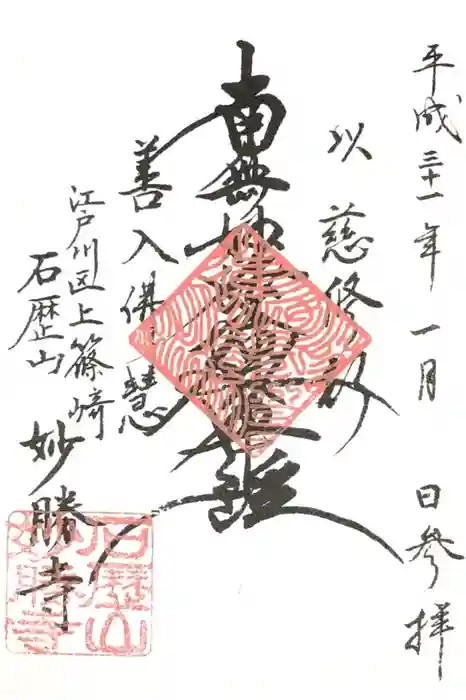 平成三十一年一月 日参拝
以慈修身
南無妙法蓮華経
善入佛慧
江戸川区上篠崎
石歴山
妙勝寺